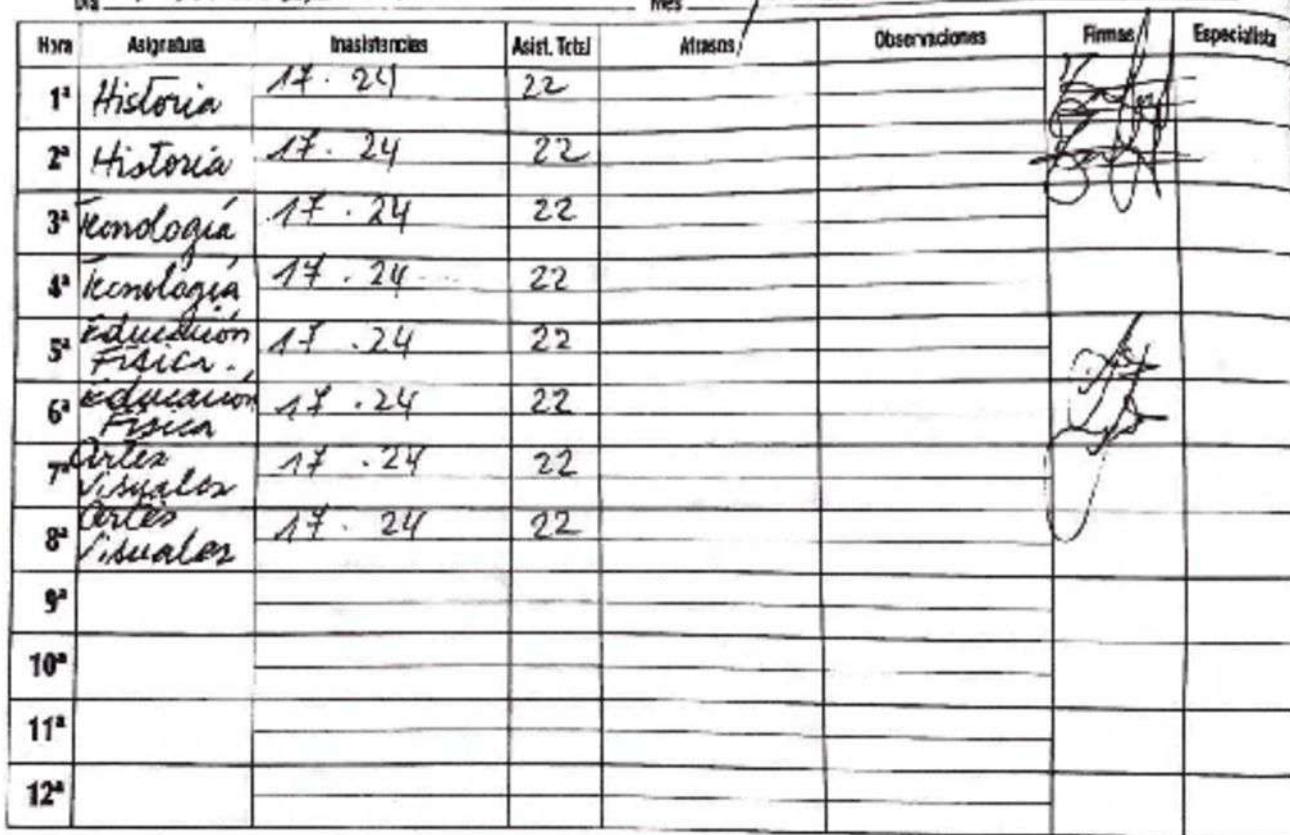 Día Mes
Hora Asignatura Inasistencias Asist. Total Atrasos Observaciones Firmas Especialista
1ª Historia 17 . 24 22
2ª Historia 17 . 24 22
3ª Tecnología 17 . 24 22
4ª Tecnología 17 . 24 22
5ª Educación Física . 17 . 24 22
6ª Educación Física 17 . 24 22
7ª Artes Visuales 17 . 24 22
8ª Artes Visuales 17 . 24 22
9ª
10ª
11ª
12ª